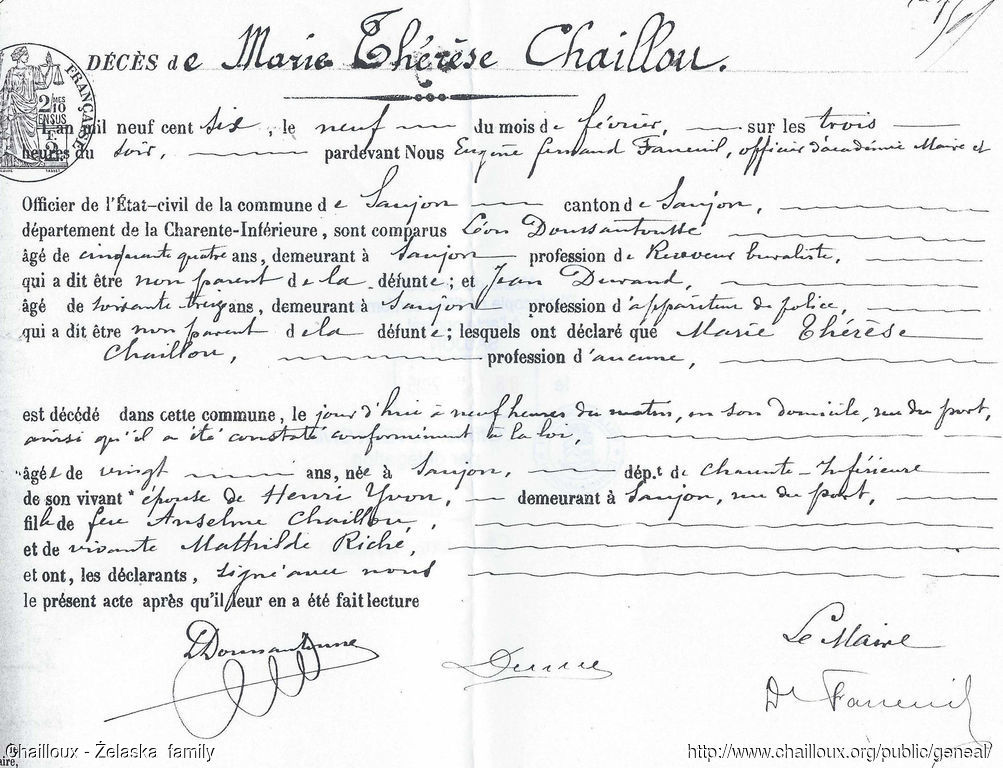 DÉCÈS de Marie Thérèse Chaillou.
FRANÇAISE
2 ÊMES
10
EN SUS
L'an mil neuf cent six, le neuf du mois de février, sur les trois
heures du soir, pardevant Nous Eugène Fernand Faneuil, officier d'académie Maire et
Officier de l'État-civil de la commune de Saujon canton de Saujon,
département de la Charente-Inférieure, sont comparus Léon Doussantousse
âgé de cinquante quatre ans, demeurant à Saujon profession de Receveur buraliste,
qui a dit être non parent de la défunte; et Jean Durand,
âgé de soixante treize ans, demeurant à Saujon profession d'appariteur de police,
qui a dit être non parent de la défunte; lesquels ont déclaré que Marie Thérèse
Chaillou, profession d'aucune,
est décédé dans cette commune, le jour d'hui à neuf heures du matin, en son domicile, rue du port,
ainsi qu'il a été constaté conformément à la loi,
âgée de vingt ans, née à Saujon, dép.t de Charente-Inférieure
de son vivant * épouse de Henri Yvon, demeurant à Saujon, rue du port,
fille de feu Anselme Chaillou,
et de vivante Mathilde Riché,
et ont, les déclarants, signé avec nous
le présent acte après qu'il leur en a été fait lecture
Le Maire
Dr Faneuil
Chailloux - Żelaska family
http://www.chailloux.org/public/geneal/